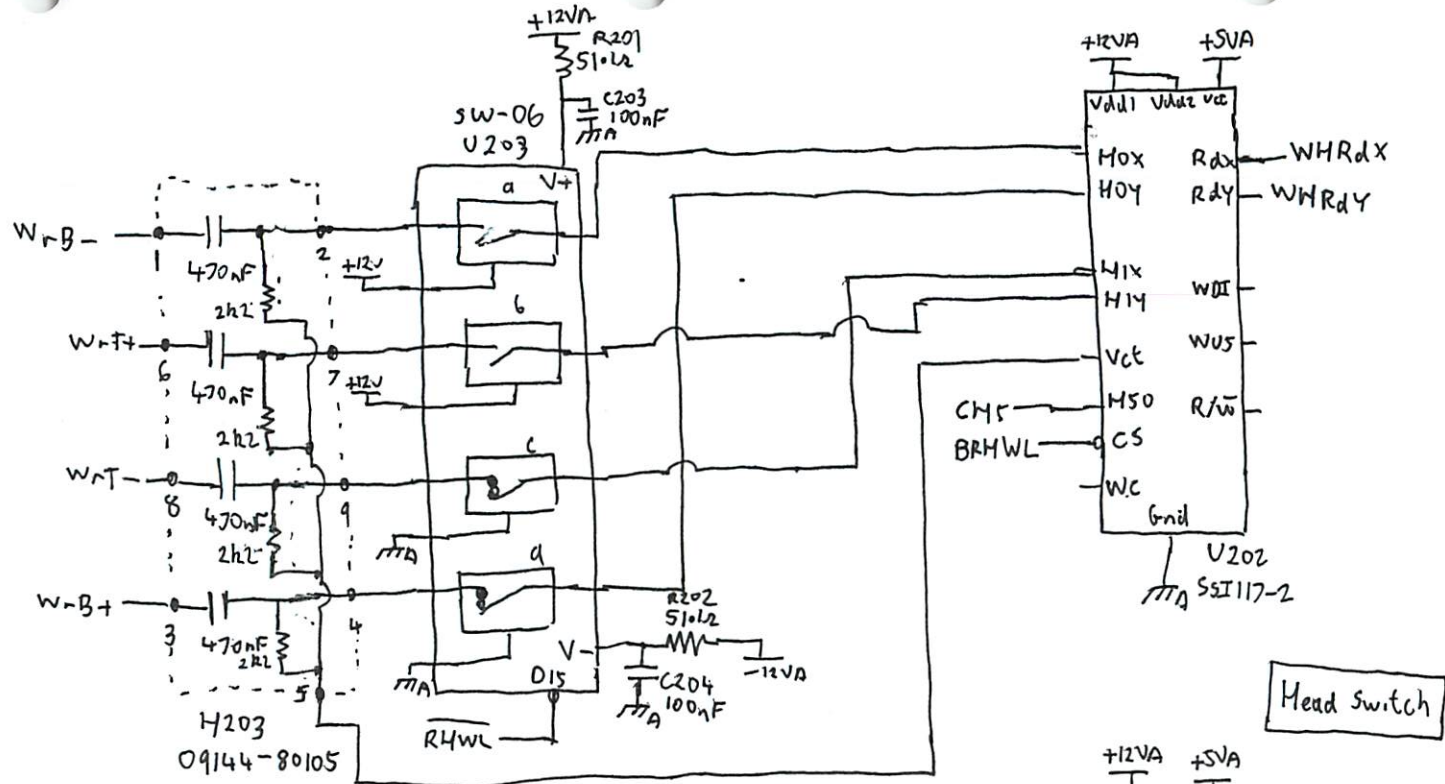 +12VA
R201
51.1Ω
C203
100nF
A
SW-06
U203
V+
a
WrB-
1
470nF
2
+12V
2k2
b
WrT+
6
470nF
7
+12V
2k2
c
WrT-
8
470nF
9
2k2
A
d
WrB+
3
470nF
4
2k2
5
A
V-
DIS
R202
51.1Ω
-12VA
C204
100nF
A
RHWL
H203
09144-80105
+12VA
+5VA
Vdd1
Vdd2
Vcc
H0X
H0Y
H1X
H1Y
Vct
HS0
CS
WC
Gnd
RdX
RdY
WDI
WUS
R/W
WHRdX
WHRdY
CHS
BRHWL
A
U202
SSI117-2
Head Switch
+12VA
+5VA